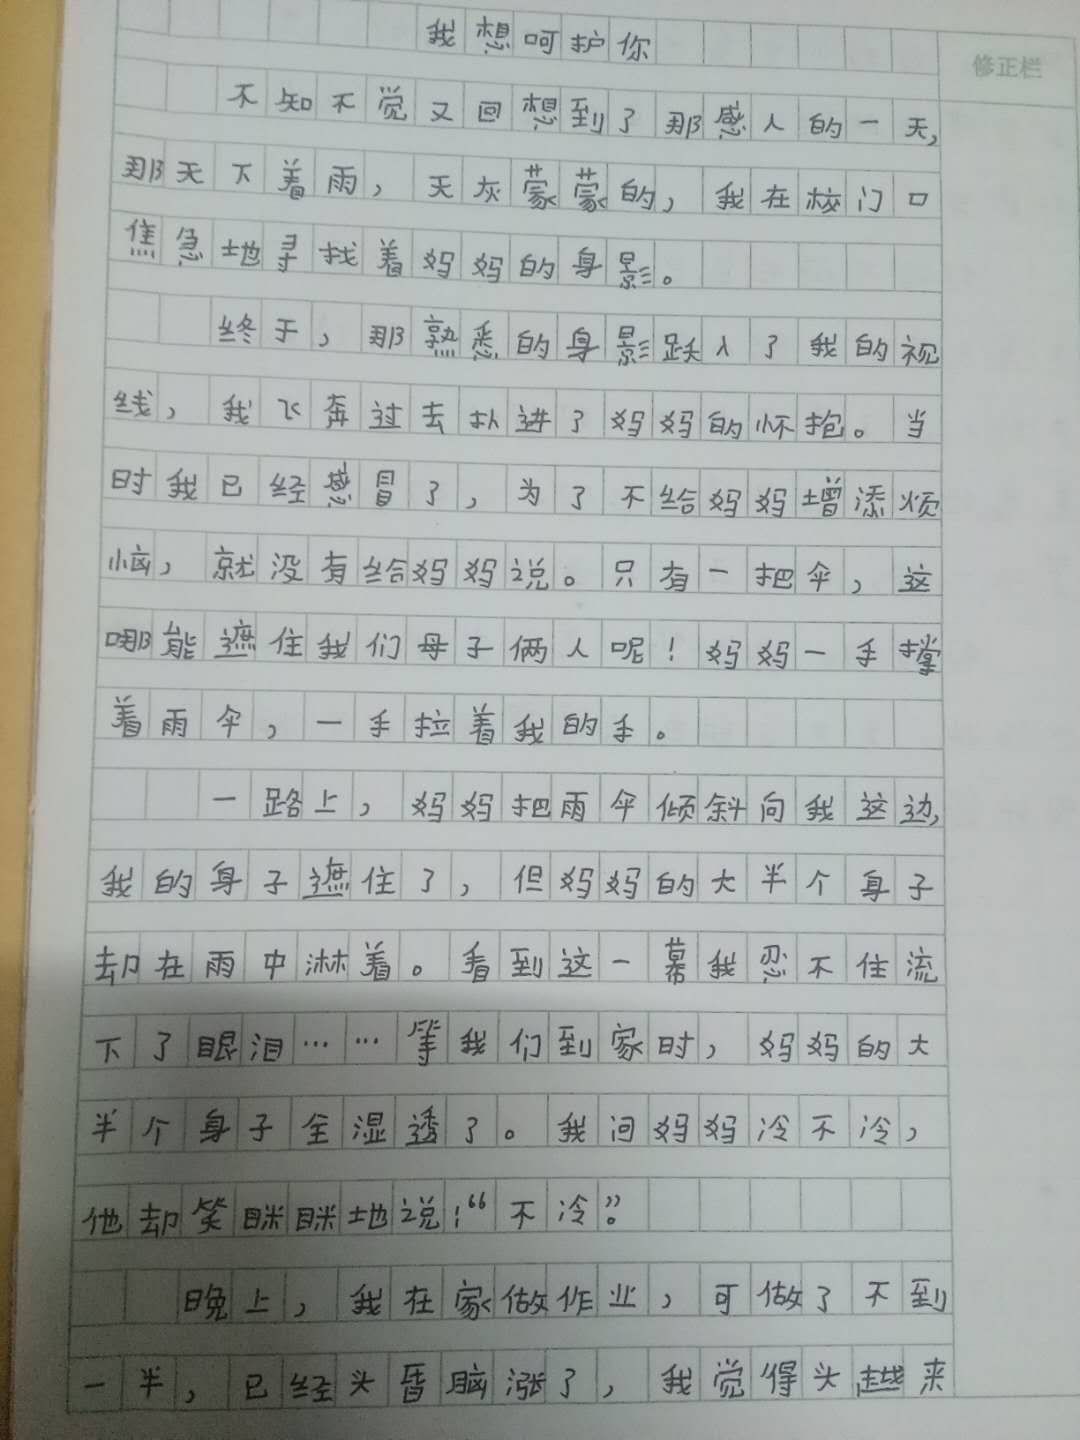 我想呵护你
修正栏
不知不觉又回想到了那感人的一天,
那天下着雨，天灰蒙蒙的，我在校门口
焦急地寻找着妈妈的身影。
终于，那熟悉的身影跃入了我的视
线，我飞奔过去扑进了妈妈的怀抱。当
时我已经感冒了，为了不给妈妈增添烦
恼，就没有给妈妈说。只有一把伞，这
哪能遮住我们母子俩人呢！妈妈一手撑
着雨伞，一手拉着我的手。
一路上，妈妈把雨伞倾斜向我这边,
我的身子遮住了，但妈妈的大半个身子
却在雨中淋着。看到这一幕我忍不住流
下了眼泪……等我们到家时，妈妈的大
半个身子全湿透了。我问妈妈冷不冷，
他却笑眯眯地说:“不冷”。
晚上，我在家做作业，可做了不到
一半，已经头昏脑涨了，我觉得头越来